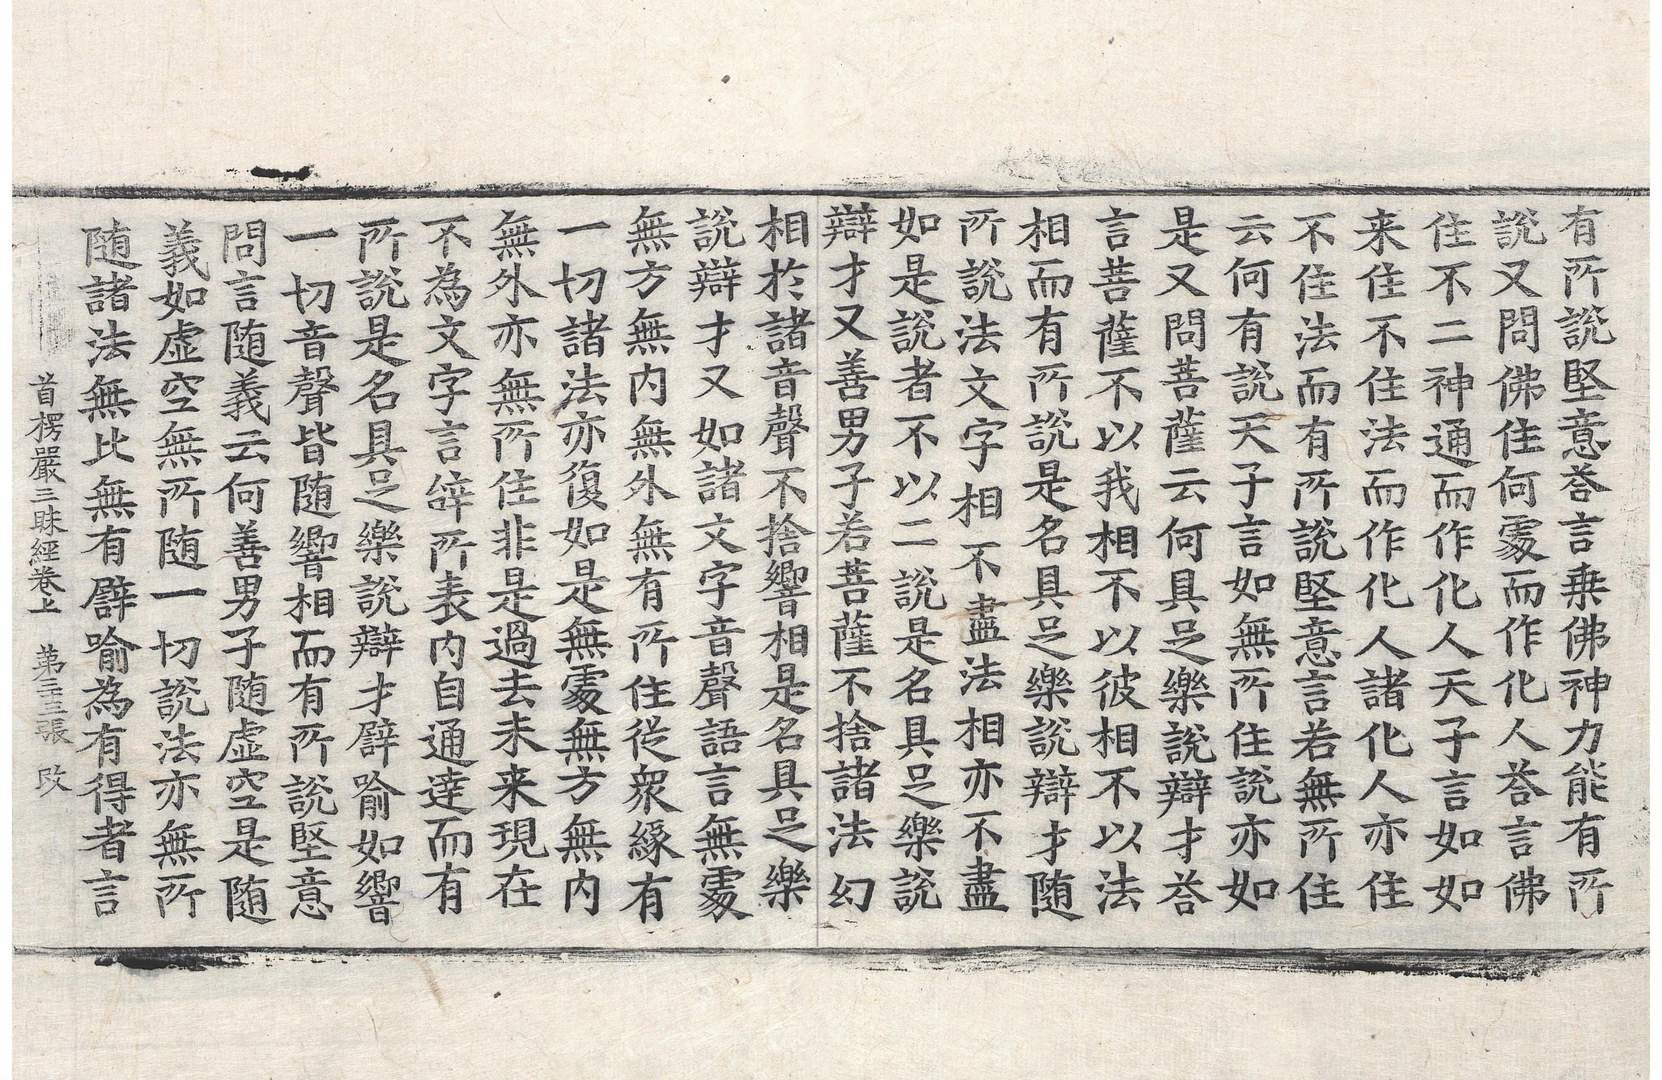 有所說堅意荅言乗佛神力能有所
說又問佛住何䖏而作化人荅言佛
住不二神通而作化人天子言如如
来住不住法而作化人諸化人亦住
不住法而有所說堅意言若無所住
云何有說天子言如無所住說亦如
是又問菩薩云何具足樂說辯才荅
言菩薩不以我相不以彼相不以法
相而有所說是名具足樂說辯才随
所說法文字相不盡法相亦不盡
如是說者不以二說是名具足樂說
辯才又善男子若菩薩不捨諸法幻
相於諸音聲不捨響相是名具足樂
說辯才又如諸文字音聲語言無䖏
無方無内無外無有所住從衆緣有
一切諸法亦復如是無䖏無方無内
無外亦無所住非是過去未来現在
不為文字言辝所表内自通達而有
所說是名具足樂說辯才譬喻如響
一切音聲皆随響相而有所說堅意
問言随義云何善男子随虚空是随
義如虚空無所随一切說法亦無所
随諸法無比無有譬喻為有得者言
首楞嚴三昧經卷上 第張 改